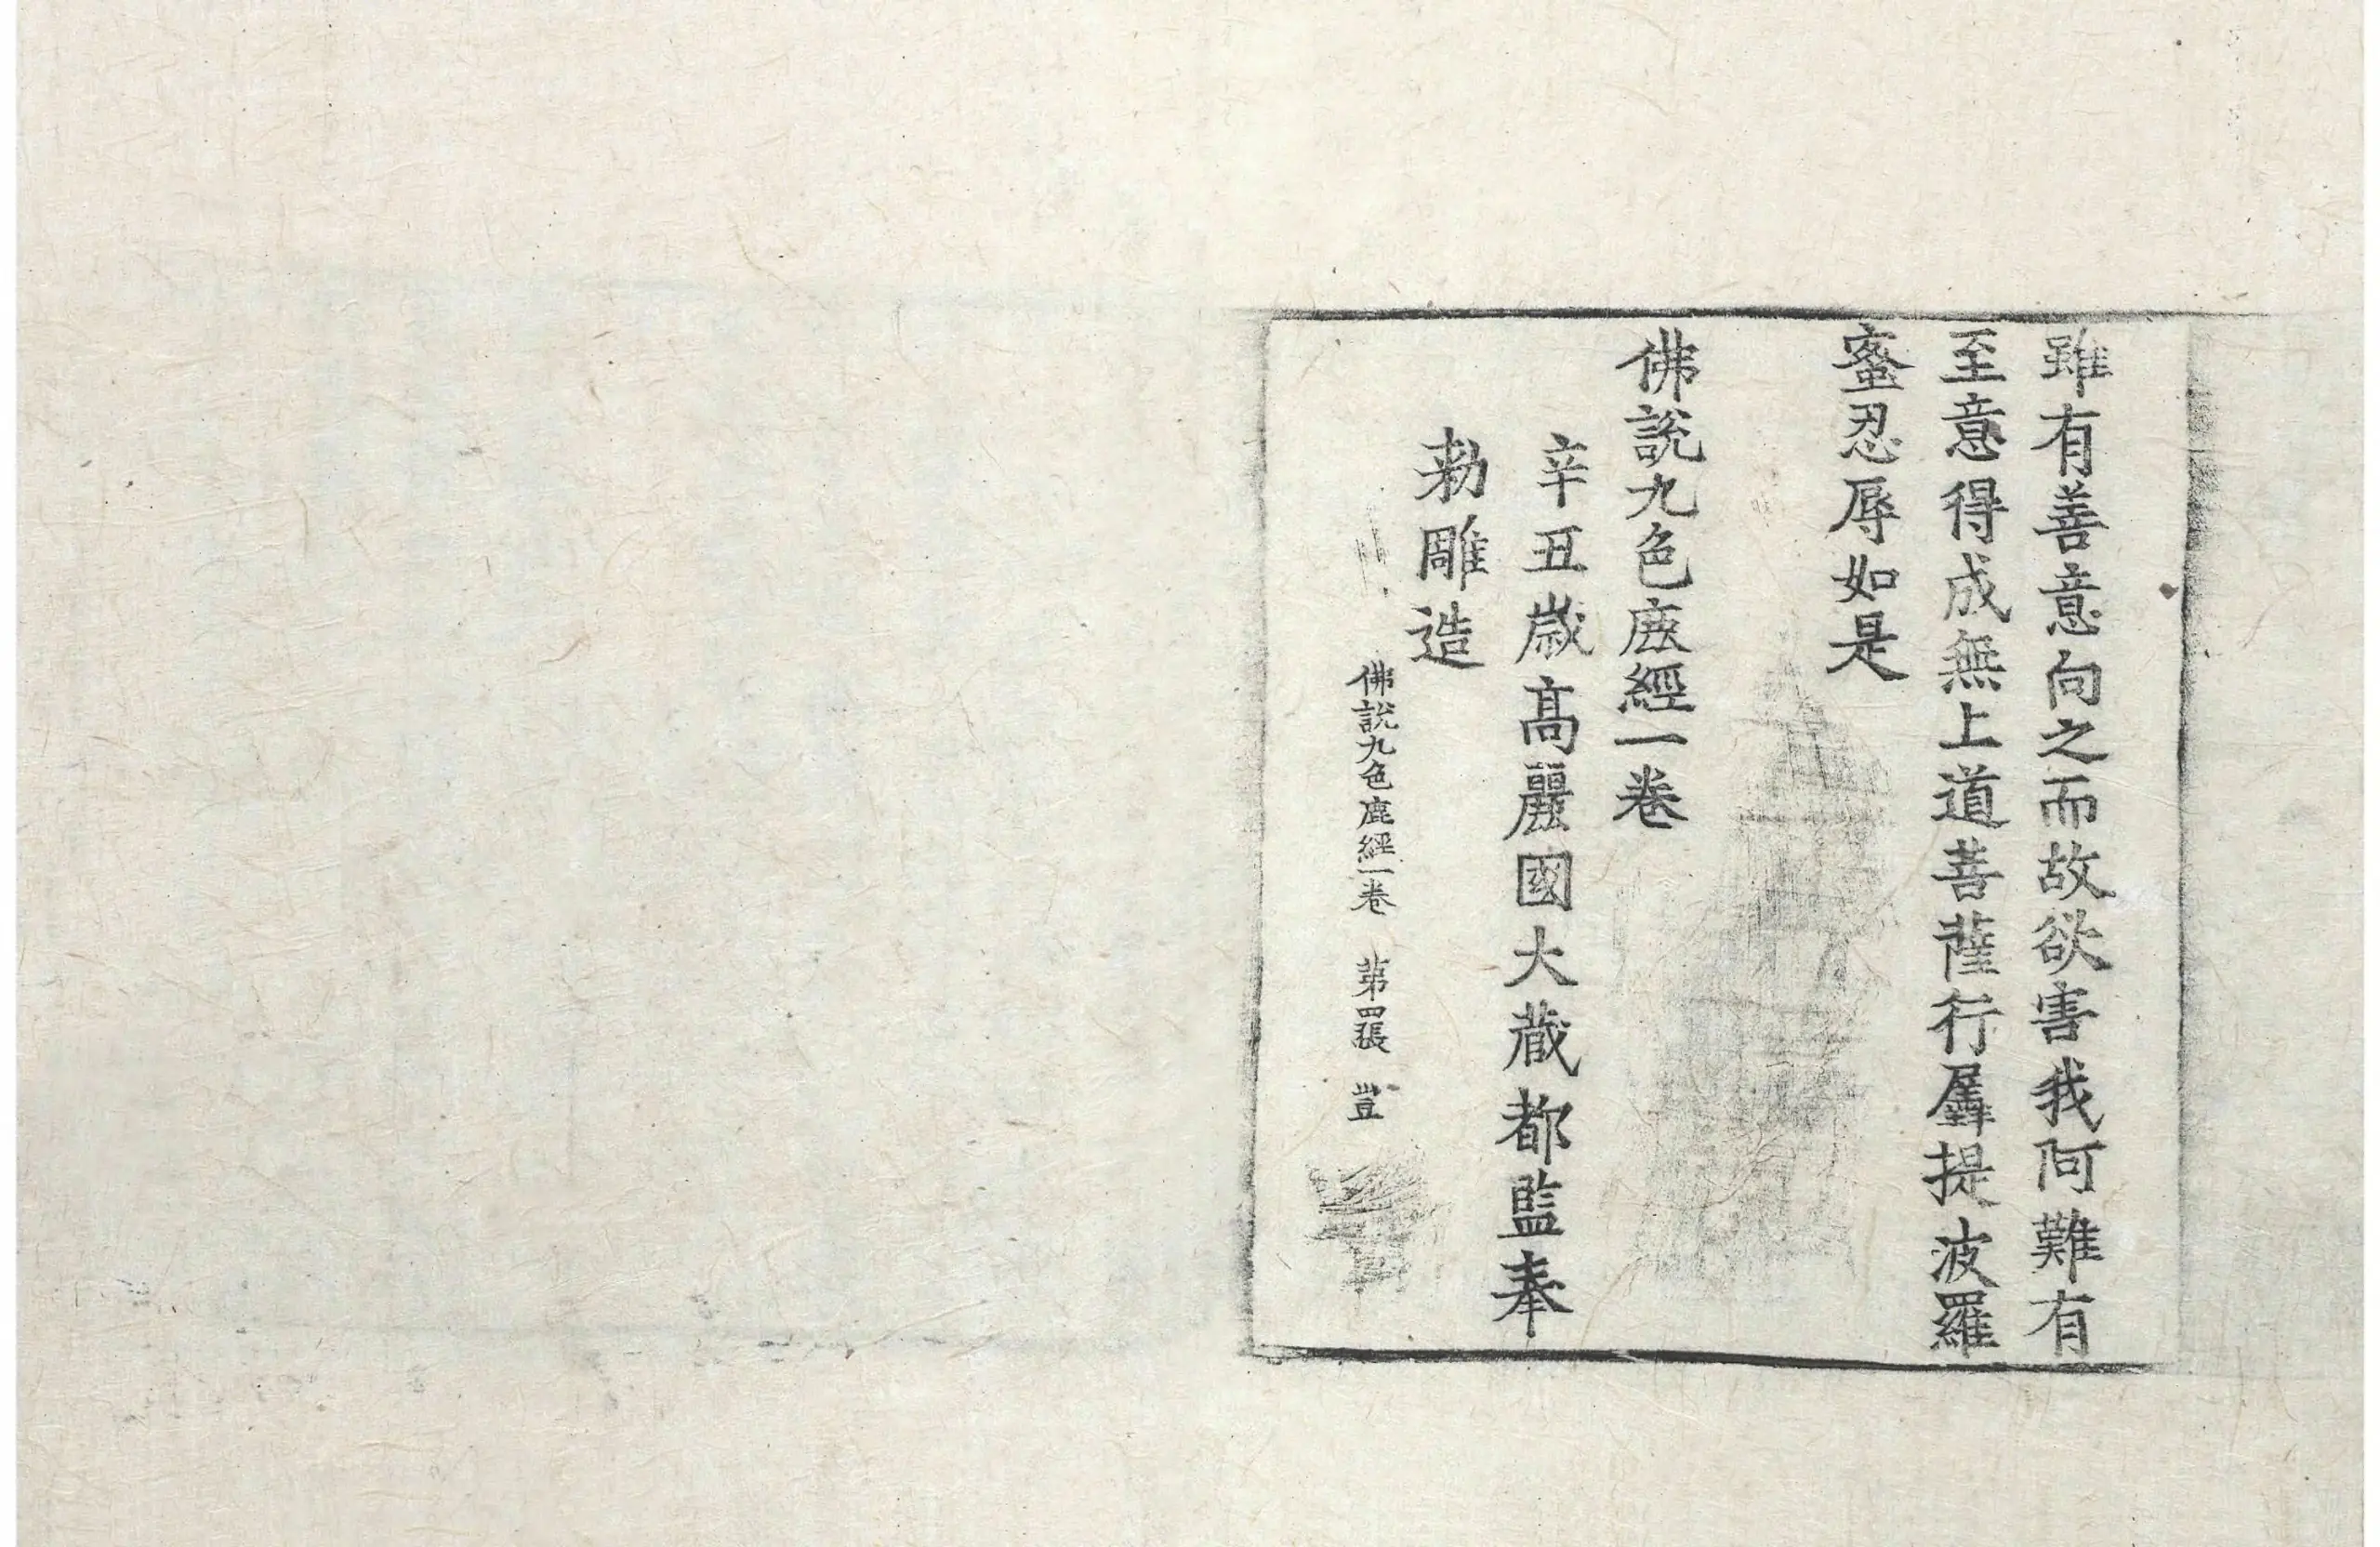 雖有善意向之而故欲害我阿難有
至意得成無上道菩薩行羼提波羅
蜜忍辱如是
佛說九色鹿經一卷
辛丑歲高麗國大藏都監奉
勅雕造
佛說九色鹿經一卷 第四張 豈